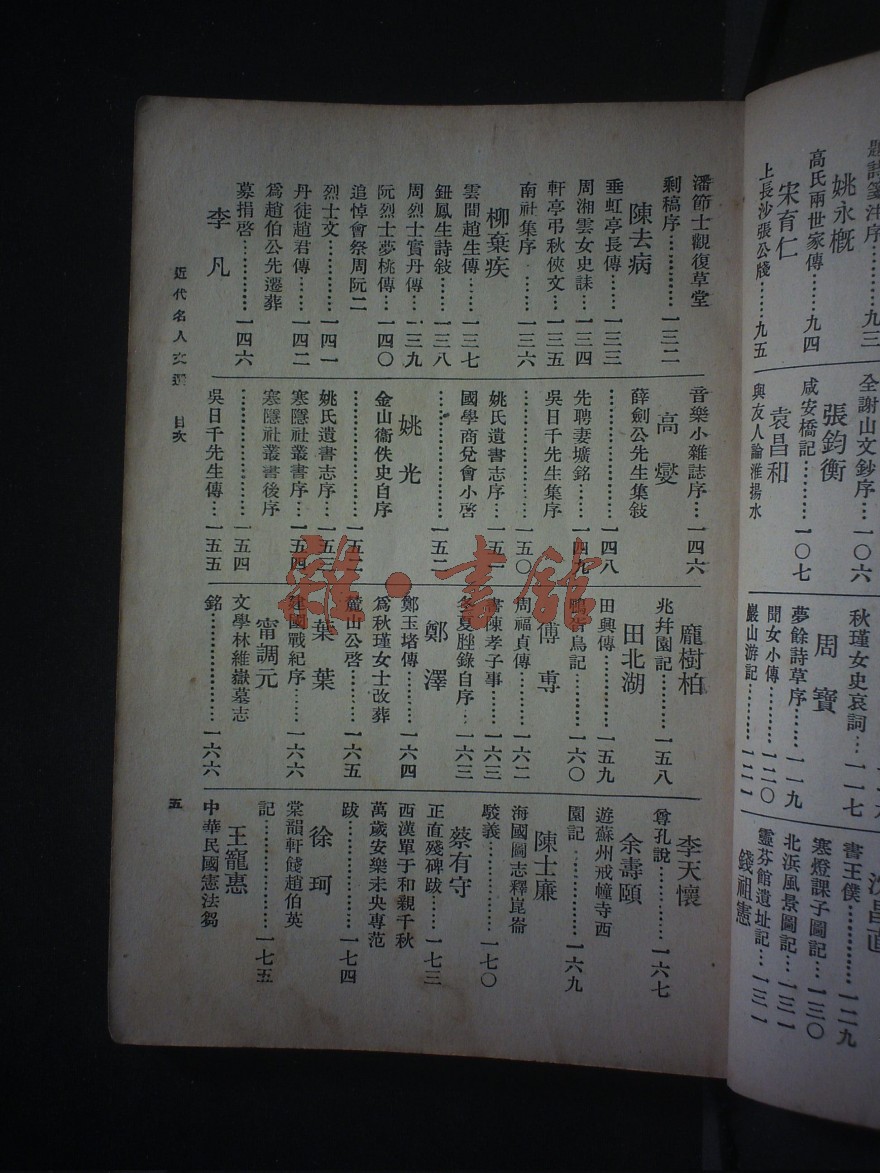 姚永概
高氏兩世家傳……九四
宋育仁
上長沙張公牋……九五
全謝山文鈔序…一〇六
張鈞衡
咸安橋記………一〇七
袁昌和
與友人論淮揚水
秋瑾女史哀詞…一一七
周寶
夢餘詩草序……一一九
聞女小傳………一二〇
巖山游記………一二一
書王僕…………一二九
寒燈課子圖記…一三〇
北浜風景圖記…一三一
靈芬館遺址記…一三一
錢祖憲
潘節士觀復草堂
剩稿序…………一三二
陳去病
垂虹亭長傳……一三三
周湘雲女史誄…一三四
軒亭弔秋俠文…一三五
南社集序………一三六
柳棄疾
雲間趙生傳……一三七
鈕鳳生詩敍……一三八
周烈士實丹傳…一三九
阮烈士夢桃傳…一四〇
追悼會祭周阮二
烈士文…………一四一
丹徒趙君傳……一四二
爲趙伯公先遷葬
募捐啓…………一四六
李凡
音樂小雜誌序…一四六
高燮
薛劍公先生集敍
……………………一四八
先聘妻壙銘……一四九
吳日千先生集序
……………………一五〇
姚氏遺書志序…一五一
國學商兌會小啓
……………………一五二
姚光
金山衞佚史自序
……………………一五二
姚氏遺書志序…一五三
寒隱社叢書序…一五四
寒隱社叢書後序
……………………一五四
吳日千先生傳…一五五
龐樹柏
兆幷園記………一五八
田北湖
田興傳…………一五九
鴨衔鳥記………一六〇
傅尃
周福貞傳………一六二
書陳孝子事……一六三
冬夏脞錄自序…一六三
鄭澤
鄭玉堦傳………一六四
爲秋瑾女士改葬
麓山公啓………一六五
葉葉
建國戰紀序……一六六
甯調元
文學林維嶽墓志
銘………………一六六
李天懷
尊孔說…………一六七
余壽頤
遊蘇州戒幢寺西
園記……………一六九
陳士廉
海國圖志釋崑崙
駁義……………一七〇
蔡有守
正直殘碑跋……一七三
西漢單于和親千秋
萬歲安樂未央專范
跋………………一七四
徐珂
棠韻軒餞趙伯英
記………………一七五
王寵惠
中華民國憲法芻
近代名人文選 目次
五
雜·書館